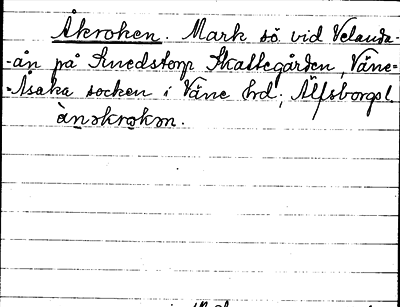 Åkroken. Mark sö. vid Velanda-
-ån på Smedstorp Skattegården, Väne-
-Åsaka socken i Väne hrd, Älfsborgs l.
ànəkrokən.